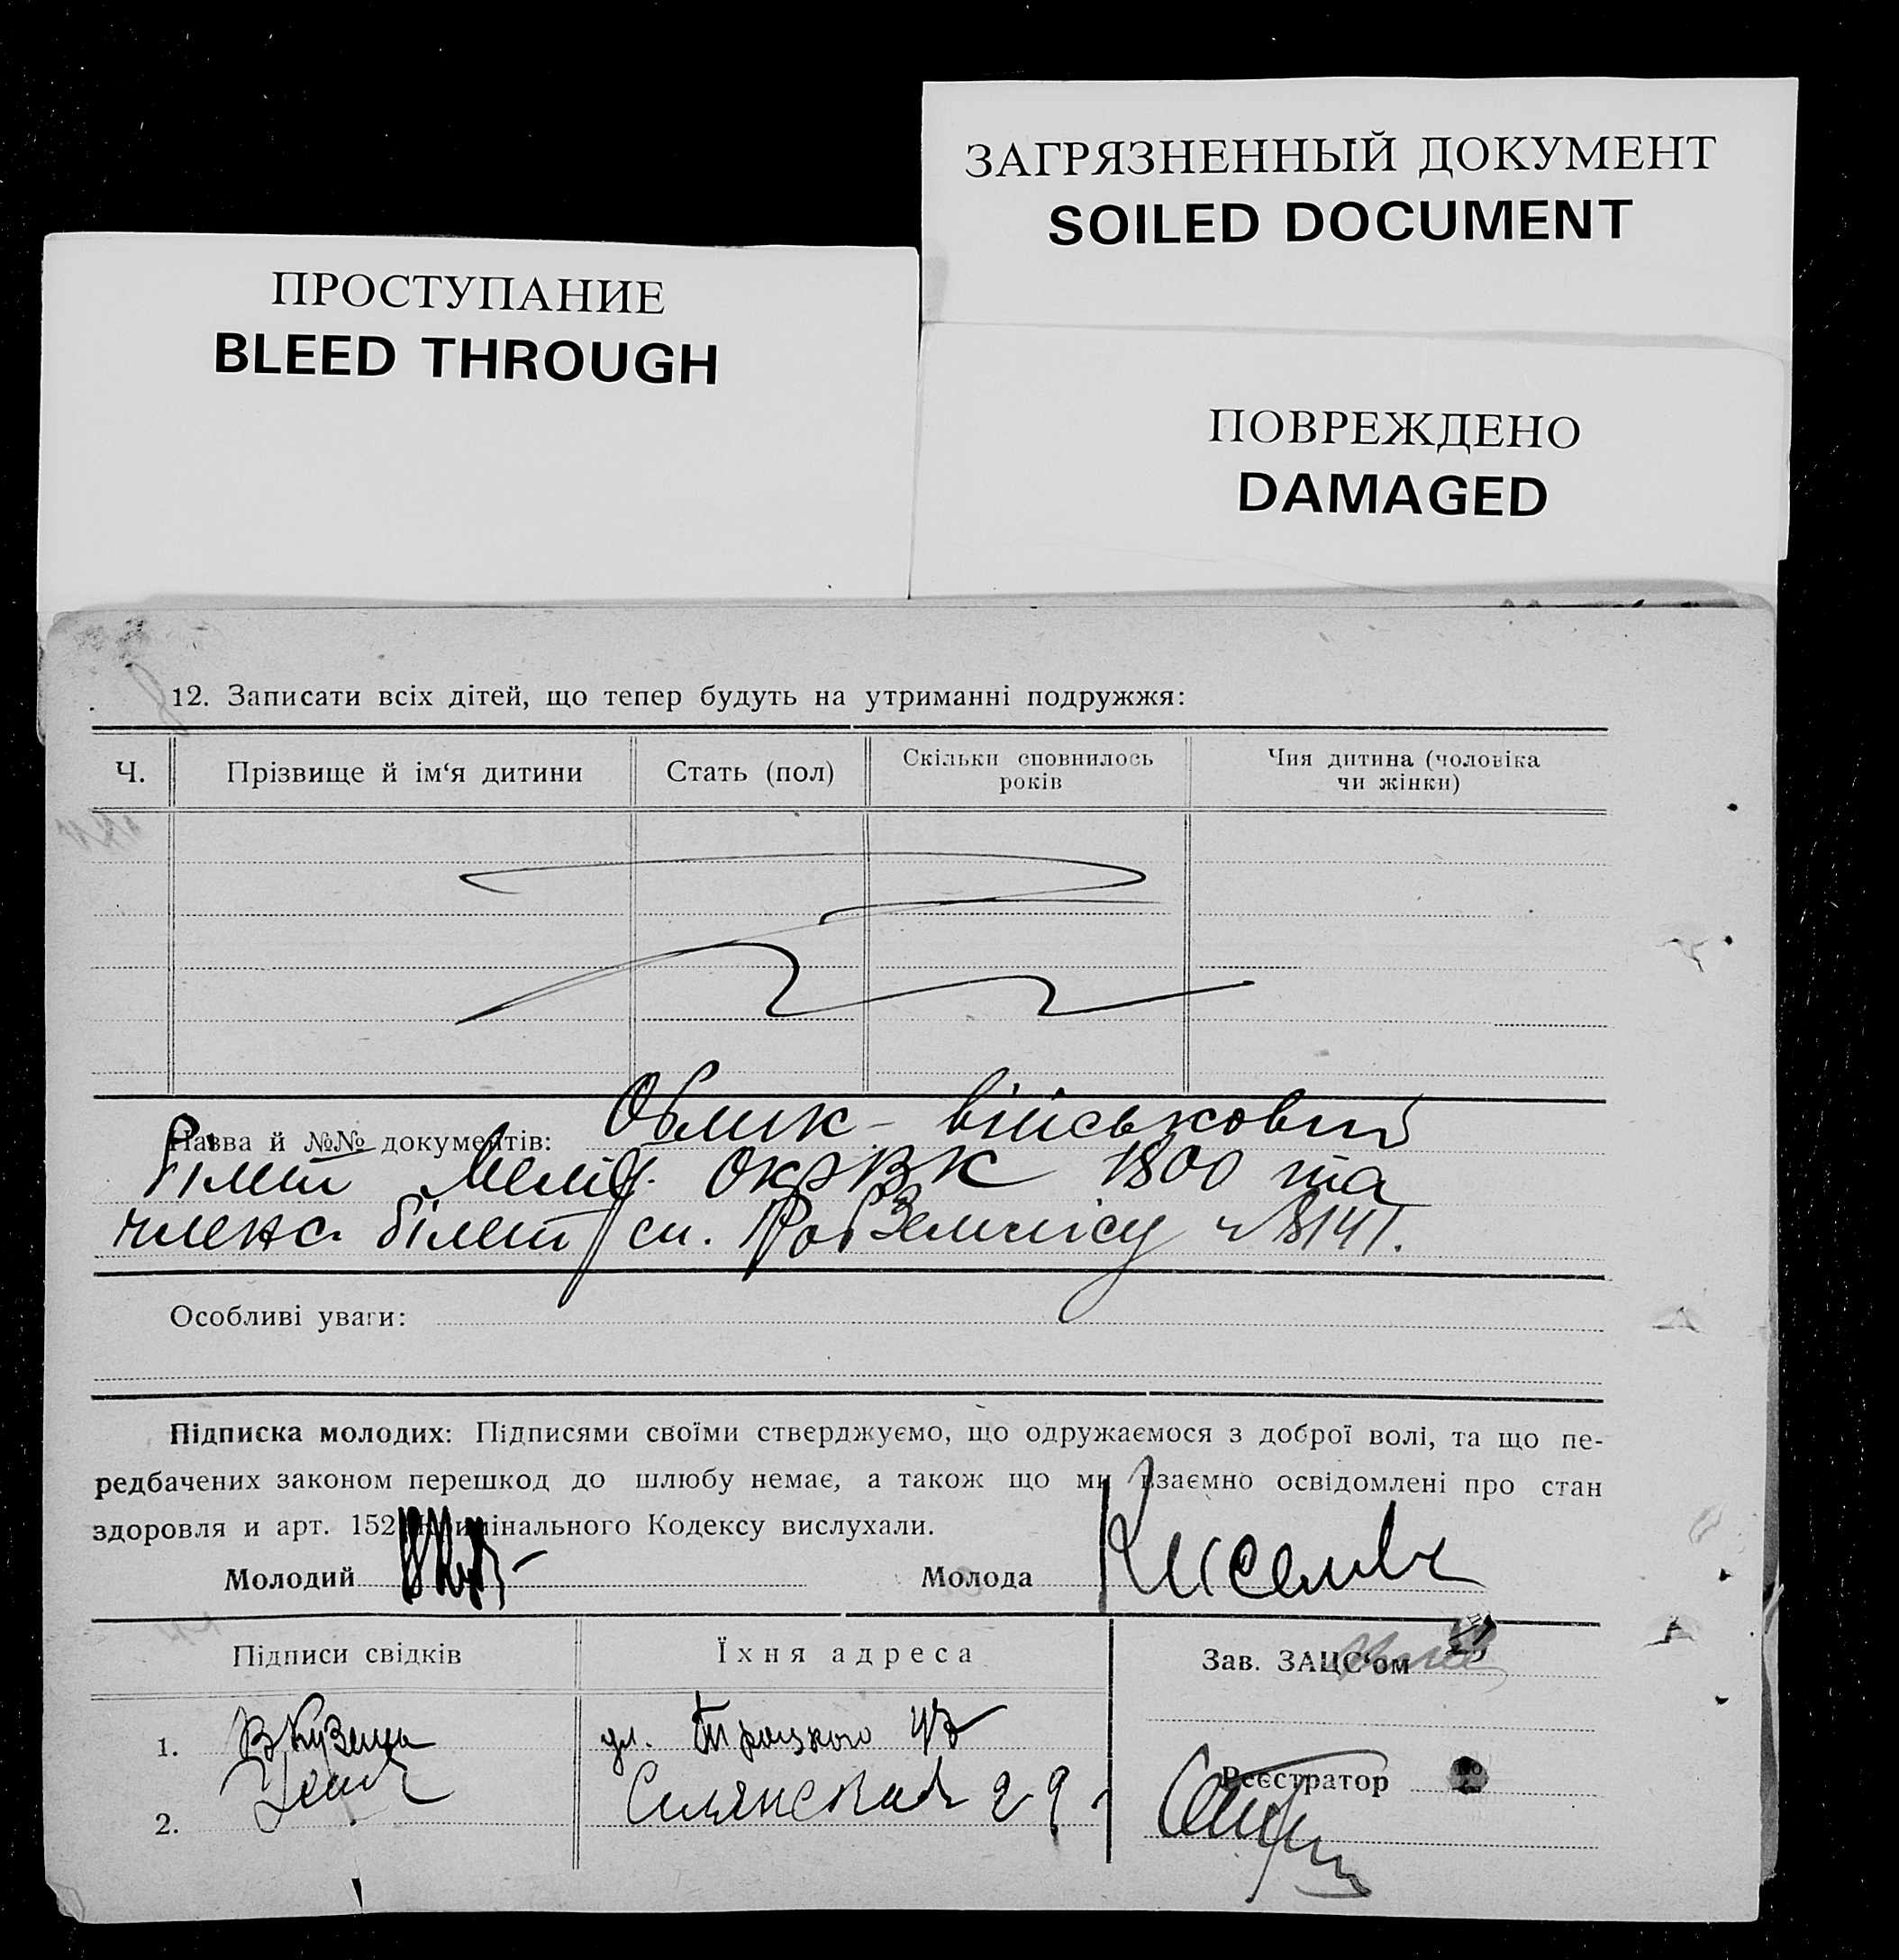 ЗАГРЯЗНЕННЫЙ ДОКУМЕНТ
SOILED DOCUMENT
ПРОСТУПАНИЕ
BLEED THROUGH
ПОВРЕЖДЕНО
DAMAGED
12. Записати всіх дітей, що тепер будуть на утриманні подружжя:
Ч.
Прізвище й ім‘я дитини
Стать (пол)
Скільки сповнилось
років
Чия дитина (чоловіка
чи жінки)
Назва й №№ документів: Облик-військовий
білет Меліт. ОКРВК 1800 та
членс. білет сп. РобЗемлісу
Особливі уваги:
Підписка молодих: Підписями своїми стверджуємо, що одружаємося з доброї волі, та що пе-
редбачених законом перешкод до шлюбу немає, а також що ми взаємно освідомлені про стан
здоровля и арт. 152 Кримінального Кодексу вислухали.
Молодий
Молода
Підписи свідків
Їхня адреса
Зав. ЗАЦС‘ом
1.
ул. Троцкого
2.
29
Реєстратор